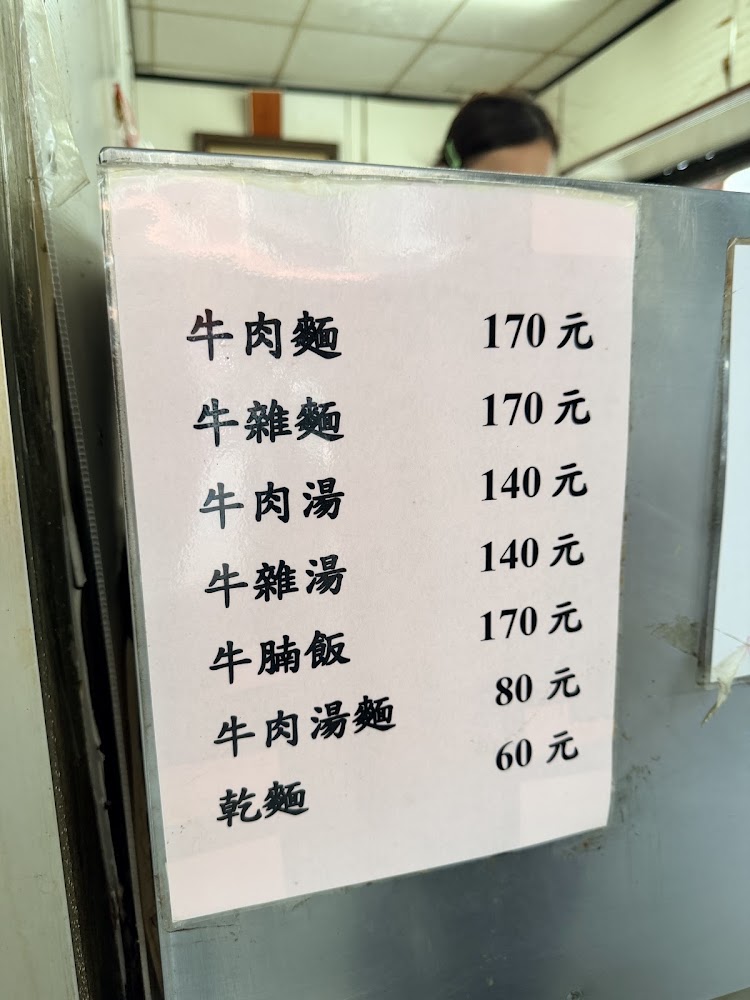 牛肉麵 170元
牛雜麵 170元
牛肉湯 140元
牛雜湯 140元
牛腩飯 170元
牛肉湯麵 80元
乾麵 60元